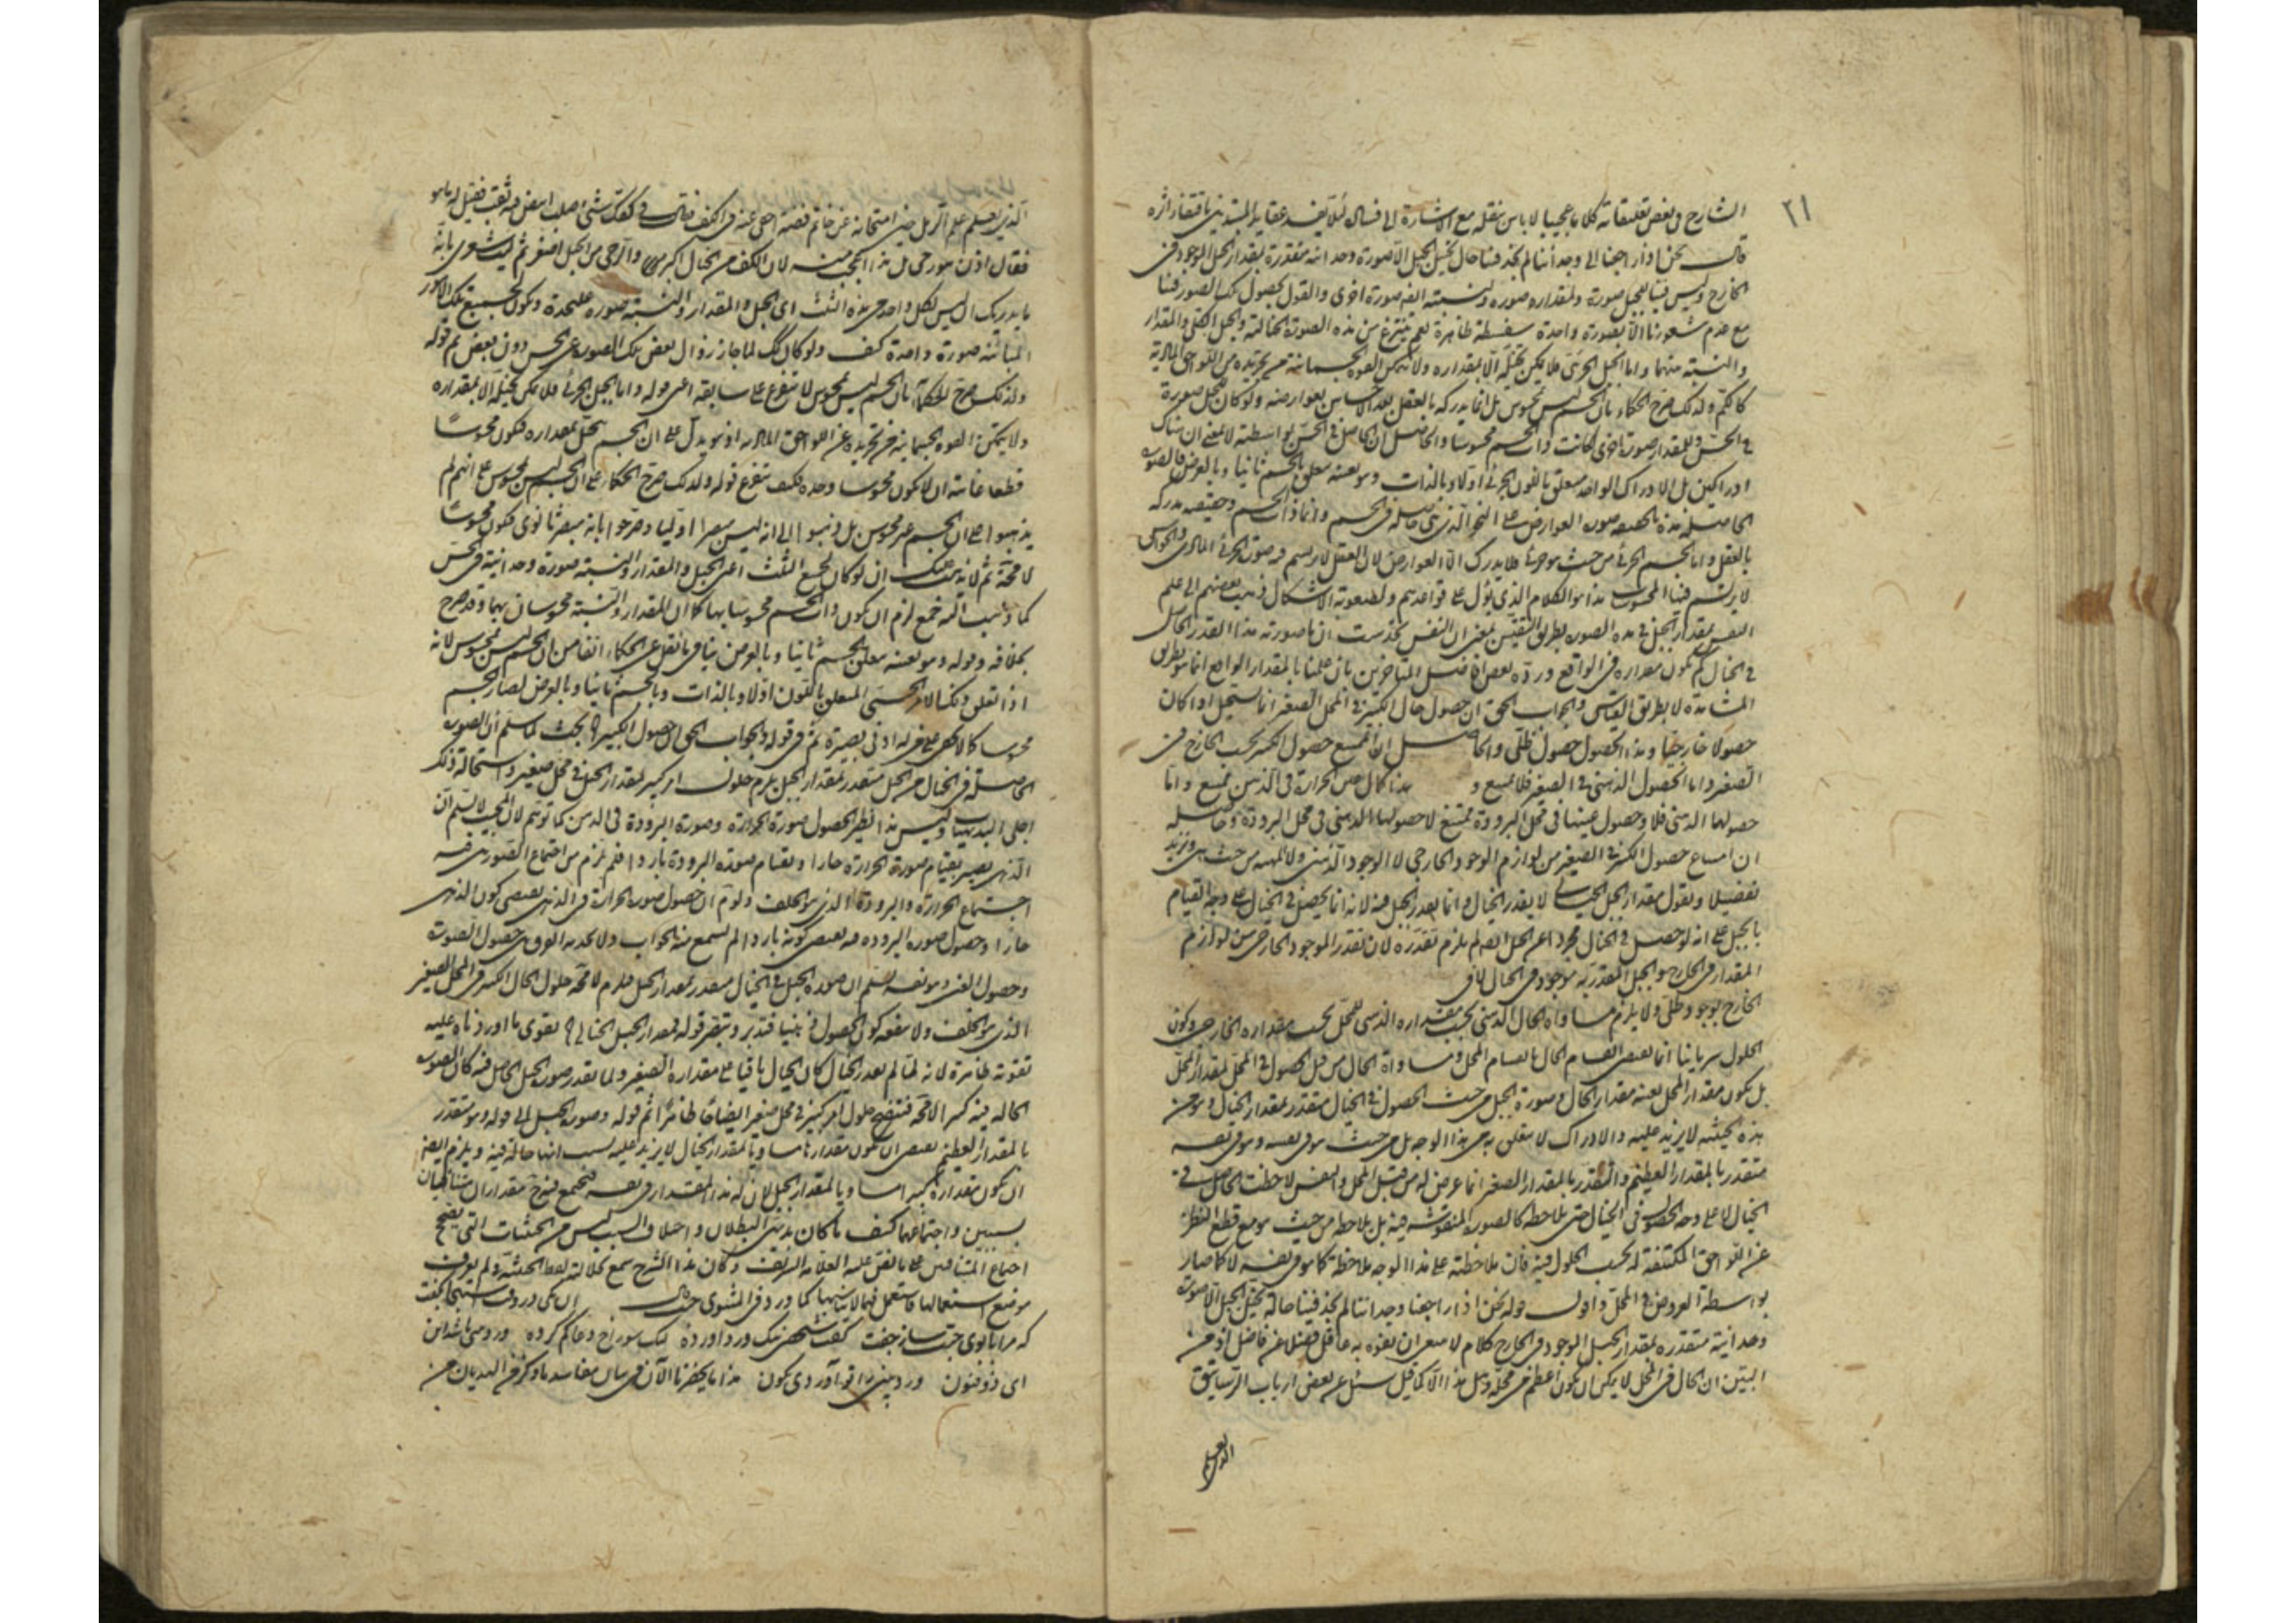 ٢١
الشارح فى بعض تعليقاته كلاما عجيبا لا باس بنقله مع الاشارة الى فساده لئلا يفسد عقايد المبتدئين باقتفاء اثره
قال نحن اذا راجعنا الى وجداننا لم نجد فينا حال تخيل الجبل الا صورة وحدانية متقدرة بمقدار الجبل الموجود فى
الخارج وليس فينا للجبل صورة ولمقداره صورة ولنسبته اليه صورة اخرى والقول بحصول تلك الصور فينا
مع عدم شعورنا الا بصورة واحدة سفسطة ظاهرة نعم ينتزع من هذه الصورة الخيالية والجبل الكلى والمقدار
والنسبة بينهما واما الجبل الجزئى فلا يمكن تخيله الا بمقداره ولا تتمكن القوة الجسمانية من تجريده من اللواحق المادية
كالكم ولذلك صرح الحكماء بان الجسم ليس بمحسوس بل انما يدركه بالعقل بعد الاحساس بعوارضه ولو كان للجبل صورة
فى الحس وللمقدار صورة اخرى لكانت ذات الجسم محسوسا والحاصل ان الحاصل فى الحس بواسطته لا بمعنى ان هناك
ادراكين بل الادراك الواحد متعلق باللون الجزئى اولا وبالذات وهو بعينه متعلق بالجسم ثانيا وبالعرض فالصورة
الحاصلة هذه بالحقيقة صورة العوارض على النحو الذى هى حاصلة فى الجسم واما ذات الجسم وحقيقته مدركة
بالعقل واما الجسم الجزئى من حيث هو جزئى فلا يدرك الا العوارض لان العقل لا يرتسم فيه صورة الجزئى المادى والحواس
لا يرتسم فيها المحسوس هذا هو الكلام الذى يؤل على قواعدهم ولصعوبة الاشكال ذهب بعضهم الى علم
النفس بمقدار الجبل فى هذه الصورة بطريق التقيس بمعنى ان النفس تحدست ان ما صورته هذا القدر الحاصل
فى الخيال كم يكون مقداره فى الواقع ورده بعض افاضل المتاخرين بان علمنا بالمقدار الواقع انما هو بطريق
المشاهدة لا بطريق القياس والجواب الحق ان حصول حال الكبير فى المحل الصغير انما يستحيل اذا كان
حصولا خارجيا وهذا الحصول حصول ظلى والحاصل ان الممتنع حصول الكبير بحسب الخارج فى
الصغير واما الحصول الذهنى فى الصغير فلا يمتنع و هذا كما ان حصول الحرارة فى الذهن ممتنع واما
حصولها الذهنى فلا وحصول عينها فى محل البرودة ممتنع لا حصولها الذهنى فى محل البرودة وحاصله
ان امتناع حصول الكبير فى الصغير من لوازم الوجود الخارجى لا الوجود الذهنى ولا الماهية من حيث هى ونزيد
تفصيلا ونقول مقدار الجبل الخيالى لا يقدر الخيال وانما يقدر الجبل فيه لانه انما يحصل فى الخيال على وجه القيام
بالجبل على انه لو حصل فى الخيال مجردا عن الجبل ايضا لم يلزم تقدره لان تقدر الموجود الخارجى من لوازم
المقدار فى الخارج والجبل المتقدر به موجود فى الخيال لا فى
الخارج بوجود ظلى ولا يلزم مساواة الحال الذهنى بحسب مقداره الذهنى للمحل بحسب مقداره الخارجى وكون
الحلول سريانيا انما يقتضى انقسام الحال بانقسام المحل ومساواة الحال من قبل الحصول فى المحل لمقدار المحل
بل يكون مقدار المحل بعينه مقدار الحال وصورة الجبل من حيث الحصول فى الخيال متقدر بمقدار الخيال وهو من
هذه الحيثية لا يزيد عليه والادراك لا يتعلق به من هذا الوجه بل من حيث هو فى نفسه وهو فى نفسه
متقدر بالمقدار العظيم والتقدر بالمقدار الصغير انما عرض له من قبل المحل والنفس لاحظت الحاصل فى
الخيال لا على وجه الحصول فى الخيال حتى يلاحظه كالصورة المنقوشة فيه بل يلاحظه من حيث هو مع قطع النظر
عن اللواحق المكتنفة له بحسب الحلول فيه فان ملاحظته على هذا الوجه ملاحظة كما هو فى نفسه لا كما صار
بواسطة العروض فى المحل واقول قوله نحن اذا راجعنا وجداننا لم نجد فينا حالة تخيل الجبل الا صورة
وحدانية متقدرة بمقدار الجبل الموجود فى الخارج كلام لا ينبغى ان يتفوه به عاقل فضلا عن فاضل اذ من
البين ان الحال فى المحل لا يمكن ان يكون اعظم من محله وهل هذا الا كما قيل سئل عن بعض ارباب الرساتيق
الذى يعلم
الذى يعلم علم الرمل حين امتحانه عن خاتم فضة اخفى عنه فى الكف فقال فى كفك شئ صلب ابيض فيه ثقب فقيل له ما هو
فقال اذن هو رحى بل هذا اعجب منه لان الكف من الخيال اكبر والرحى من الجبل اصغر ثم ليت شعرى بانه
ما يدريك ان ليس لكل واحد من هذه الثلث اى الجبل والمقدار والنسبة صورة عليحدة ويكون لجميع تلك الامور
المتباينة صورة واحدة كيف ولو كان كذلك لما جاز زوال بعض تلك الصور عن الحس دون بعض ثم قوله
ولذلك صرح الحكماء بان الجسم ليس بمحسوس لا يتفرع على سابقه اعنى قوله واما الجبل الجزئى فلا يمكن تخيله الا بمقداره
ولا يتمكن القوة الجسمانية من تجريده عن اللواحق المادية اذ هو يدل على ان الجسم يتخيل بمقداره فيكون محسوسا
قطعا غايته ان لا يكون محسوسا وحده فكيف يتفرع قوله ولذلك صرح الحكماء على ان الجسم ليس بمحسوس على انهم لم
يذهبوا الى ان الجسم غير محسوس بل ذهبوا الى انه ليس مبصرا اوليا وصرحوا بانه مبصر ثانوى فيكون محسوسا
لا محة ثم لا يذهب عليك ان لو كان لجميع الثلث اعنى الجبل والمقدار والنسبة صورة وحدانية فى الحس
كما ذهب اليه فح لزم ان يكون ذات الجسم محسوسا بها كما ان المقدار والنسبة محسوسان بها وقد صرح
بخلافه وقوله وهو بعينه متعلق بالجسم ثانيا وبالعرض ينافى ما نقل عن الحكماء انفا من ان الجسم ليس بمحسوس لانه
اذا تعلق ذلك الادراك الحسى المتعلق باللون اولا وبالذات وبالجسم ثانيا وبالعرض لصار الجسم
محسوسا كما لا يخفى على من له ادنى بصيرة ثم فى قوله والجواب الحق ان حصول الكبير الخ بحث لما سلم ان الصورة
الحاصلة فى الخيال من الجبل متقدر بمقدار الجبل يلزم حلول امر كبير لمقدار الجبل فى محل صغير واستحالة ذلك
اجلى البديهيات وليس هذا نظير الحصول صورة الحرارة وصورة البرودة فى الذهن كما توهم لان المجيب لا يسلم ان
الذهن يصير بقيام صورة الحرارة حارا وبقيام صورة البرودة باردا فلم يلزم من اجتماع الصورتين فيه
اجتماع الحرارة والبرودة الذى هو الخلف ولو تم ان حصول صورة الحرارة فى الذهن يقتضى كون الذهن
حارا وحصول صورة البرودة فيه يقتضى كونه باردا لم يسمع منه الجواب ولا يجديه الفرق بين حصول الصورة
وحصول العين وهو نفسه يسلم ان صورة الجبل فى الخيال متقدر بمقدار الجبل فيلزم لا محة حلول الحال الكبير فى المحل الصغير
الذى هو الخلف ولا ينفعه كون الحصول ذهنيا فتدبر وتبصر قوله فمقدار الجبل الخيالى الخ يقوى ما اوردناه عليه
تقوية ظاهرة لانه لما لم يقدر الخيال كان الخيال باقيا على مقداره الصغير ولما تقدر صورة الجبل الحاصل فيه كان الصورة
الحالة فيه كبيرا لا محة فيتضح حلول امر كبير فى محل صغير ايضاحا ظاهرا ثم قوله وصورة الجبل الى قوله وهو متقدر
بالمقدار العظيم يقتضى ان يكون مقدارها مساويا لمقدار الخيال لا يزيد عليه بسبب انها حالة فيه ويلزم ايضا
ان يكون مقداره كبيرا مساويا لمقدار الجبل لان له هذا المقدار فى نفسه فيجتمع فيه مقداران متنافيان
بسببين واجتماعهما كيف ما كان بديهى البطلان واختلاف السبب ليس من الحيثيات التى يصحح
اجتماع المتنافيين على ما نص عليه العلامة الشريف وكان هذا الشرح سمع كلاما لفظ الحيثية ولم يعرف
موضع استعمالها فاستعمل فيما لا يناسبها كما ورد فى المثنوى حيث قال ان يكى در وقت استنجا بگفت
كه مرا با بوى جنت ساز جفت گفت شخصى نيك ورد آورده ليك سوراخ دعا گم كرده ورد بينى باشد اين
اى ذو فنون ورد بينى را تو آوردى بكون هذا ما يحضرنا الآن فى بيان مفاسد ما ذكر من الهذيان من